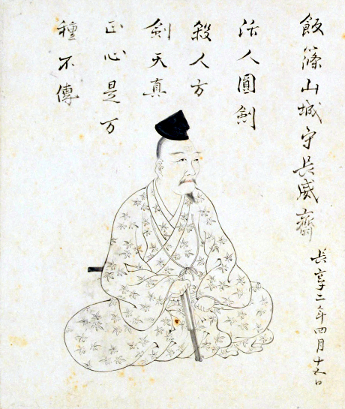 飯篠山城守長威齋
長享二年四月十五日
活人圓剣
殺人方
剣天真
正心是万
種不傳